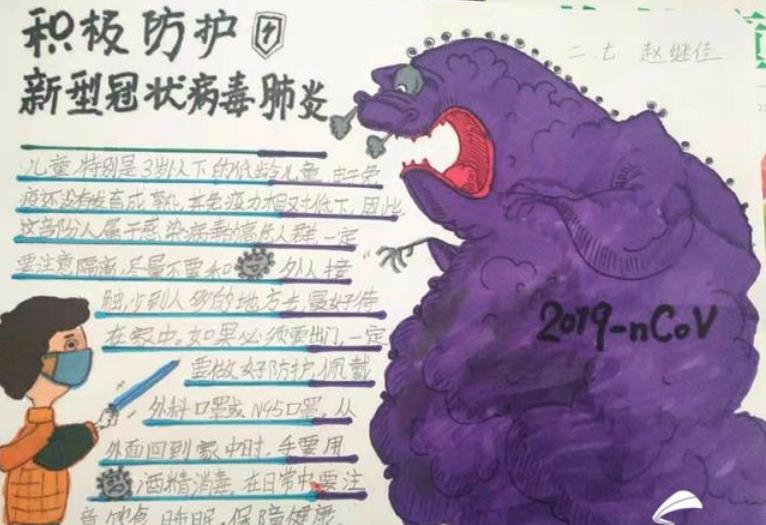 积极防护
新型冠状病毒肺炎
二.七 赵继佳
儿童,特别是3岁以下的低龄儿童,由于免
疫还没有发育成熟,其免疫力相对低下,因此
这部分人属于感染病毒的高危人群,一定
要注意隔离,尽量不要和外人接
触,少到人多的地方去,最好待
在家中,如果必须要出门,一定
要做好防护,佩戴
外科口罩或N95口罩,从
外面回到家中时,手要用
酒精消毒,在日常中要注
意饮食,睡眠,保障健康.
2019-nCoV